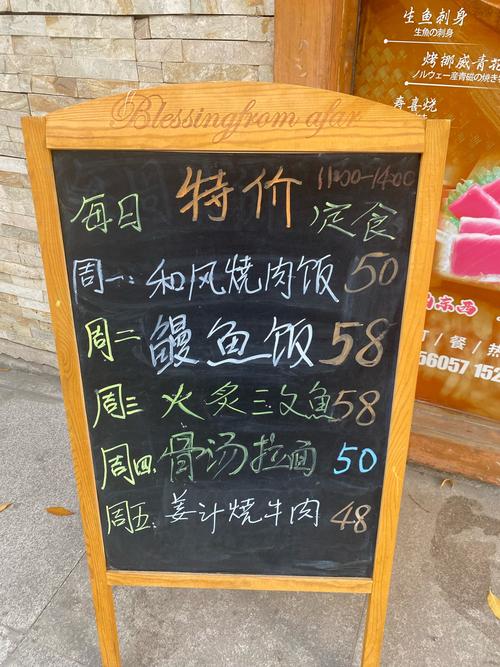 Blessingfrom afar
每日 特价 11:00-14:00 定食
周一: 和风燒肉饭 50
周二 鰻鱼饭 58
周三 火炙三文魚 58
周四. 骨汤拉面 50
周五: 姜汁燒牛肉 48
生鱼刺身
生魚の刺身
烤挪威青花
ノルウェー産青磁の焼き
寿喜烧
的东西
订/餐/热
56057 152